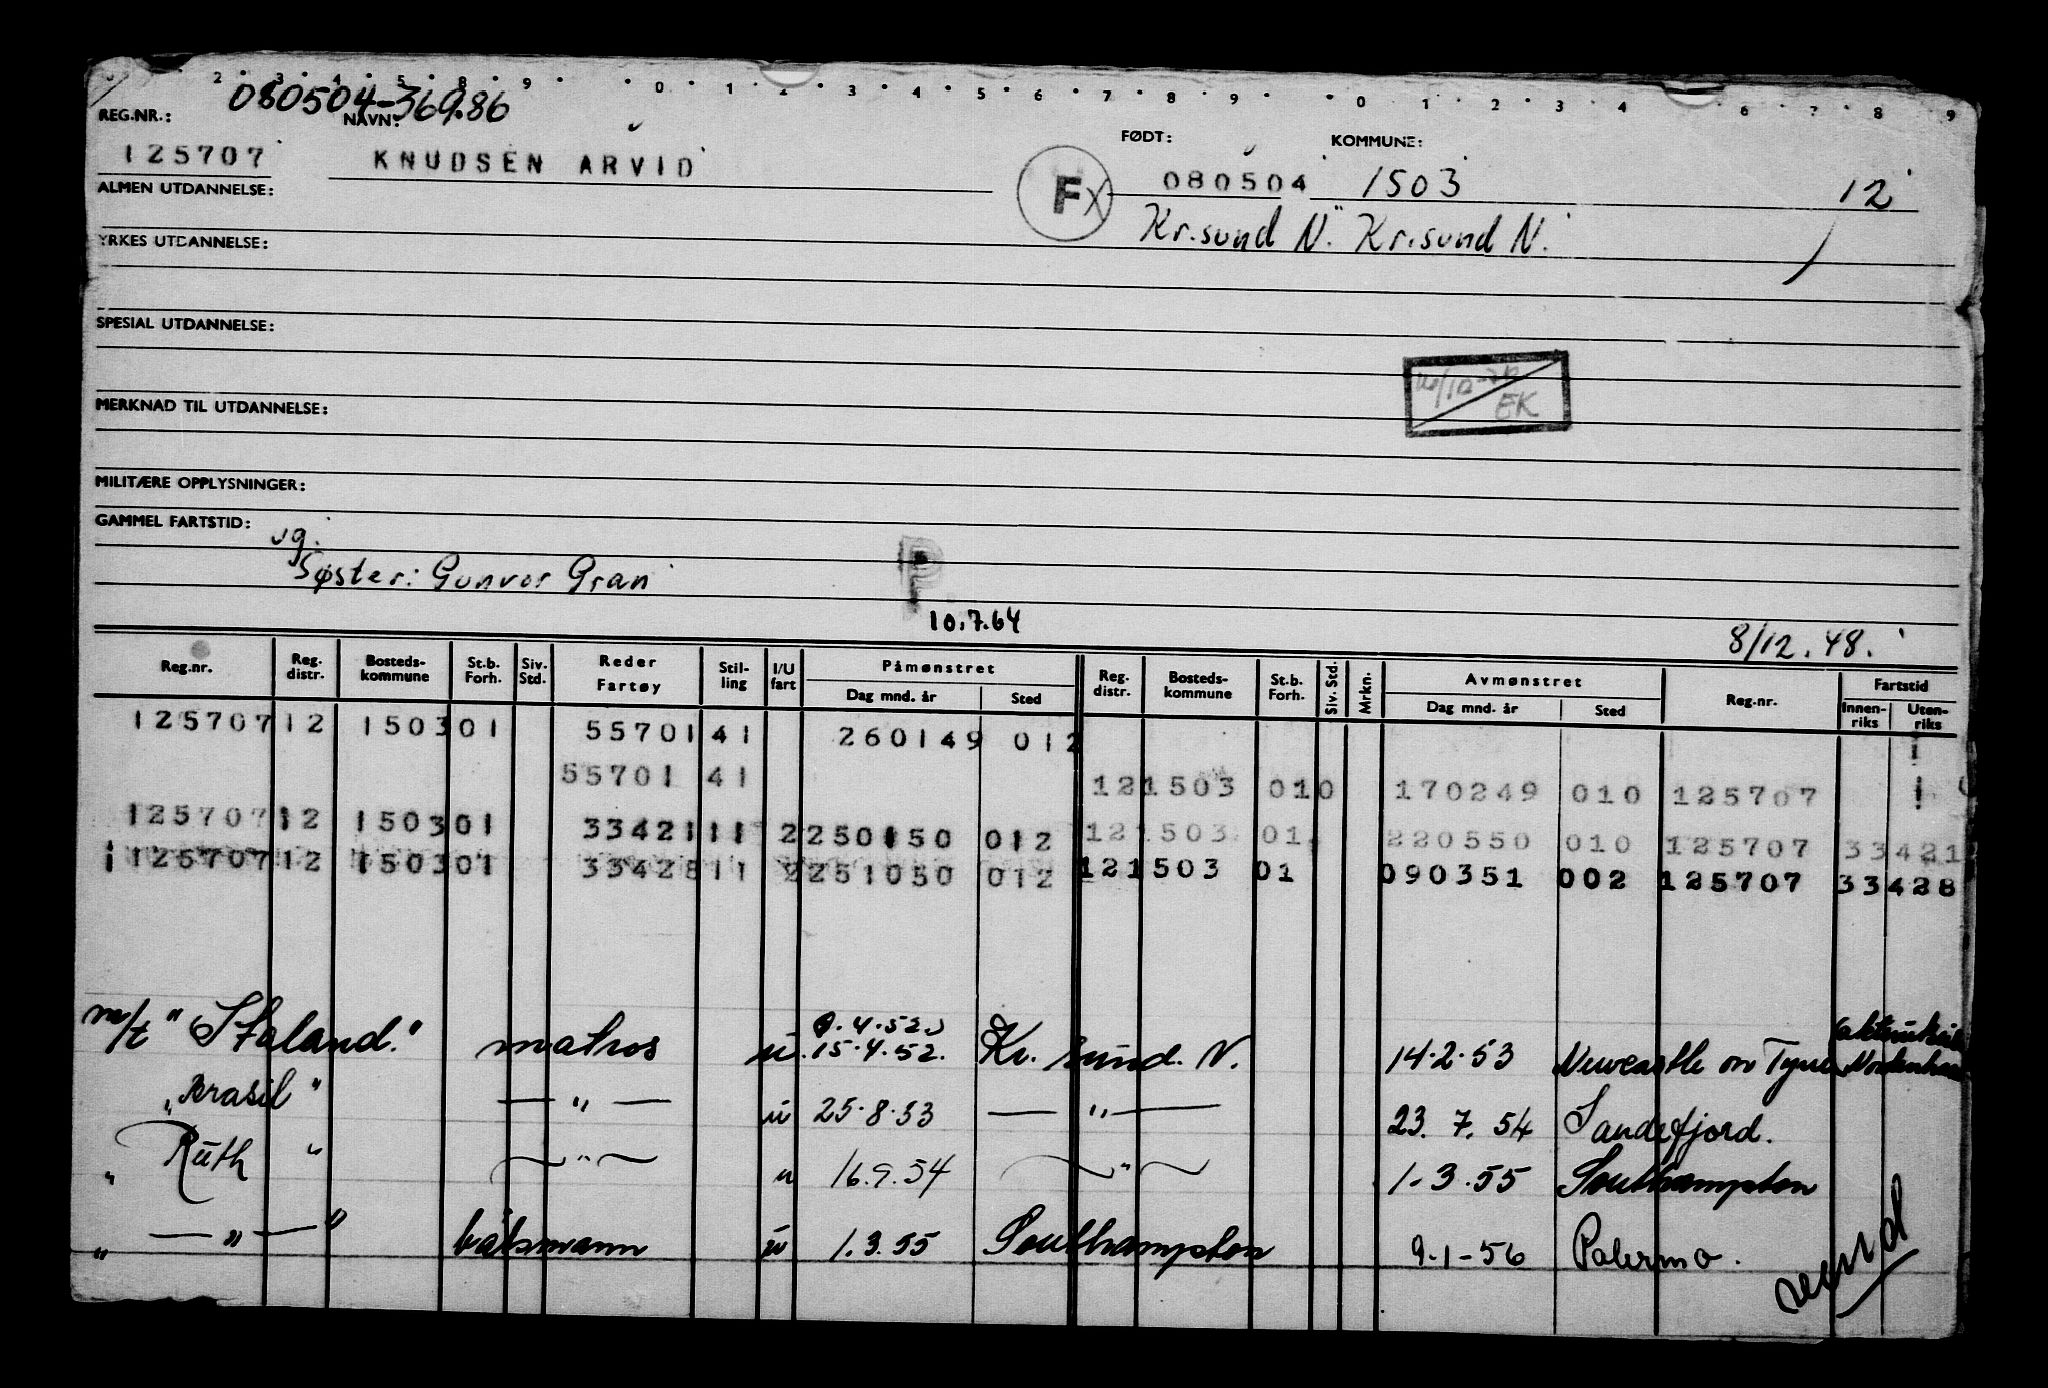 2 3 4 5 8 9 0 1 2 3 4 5 6 7 8 9 0 1 2 3 4 6 7 8 9
080504-369.86
REG.NR.: NAVN: FØDT: KOMMUNE:
125707 KNUDSEN ARVID Fx 080504 1503 12
ALMEN UTDANNELSE: Kr.sund N. Kr.sund N.
YRKES UTDANNELSE:
SPESIAL UTDANNELSE:
EK
MERKNAD TIL UTDANNELSE:
MILITÆRE OPPLYSNINGER:
GAMMEL FARTSTID:
ug.
Søster: Gunvor Gran P
10.7.64 8/12.48.
Reg.nr. Reg. distr. Bosteds-kommune St.b. Forh. Siv. Std. Reder Fartøy Stil-ling I/U fart Påmønstret Dag mnd. år Sted Reg. distr. Bosteds-kommune St.b. Forh. Siv. Std. Mrkn. Avmønstret Dag mnd. år Sted Reg.nr. Fartstid Innen-riks Uten-riks
125707 12 1503 01 55701 41 260149 012 1
55701 41 12 1503 010 170249 010 125707 1
125707 12 1503 01 33421 11 2 250150 012 12 1503 01 220550 010 125707 33421
1 125707 12 1503 01 33428 11 2 251050 012 12 1503 01 090351 002 125707 33428
9.4.52.
m/t "Staland." matros u. 15.4.52. Kr. sund. N. 14.2.53 Newcastle on Tyne
"Brasil" — " — u 25.8.53 — " — 23. 7. 54 Sandefjord.
" Ruth " — " — u 16.9.54 — " — 1-3.55 Southampton
" — " — " båtsmann u 1.3.55 Southampton 9-1-56 Palermo.
vend